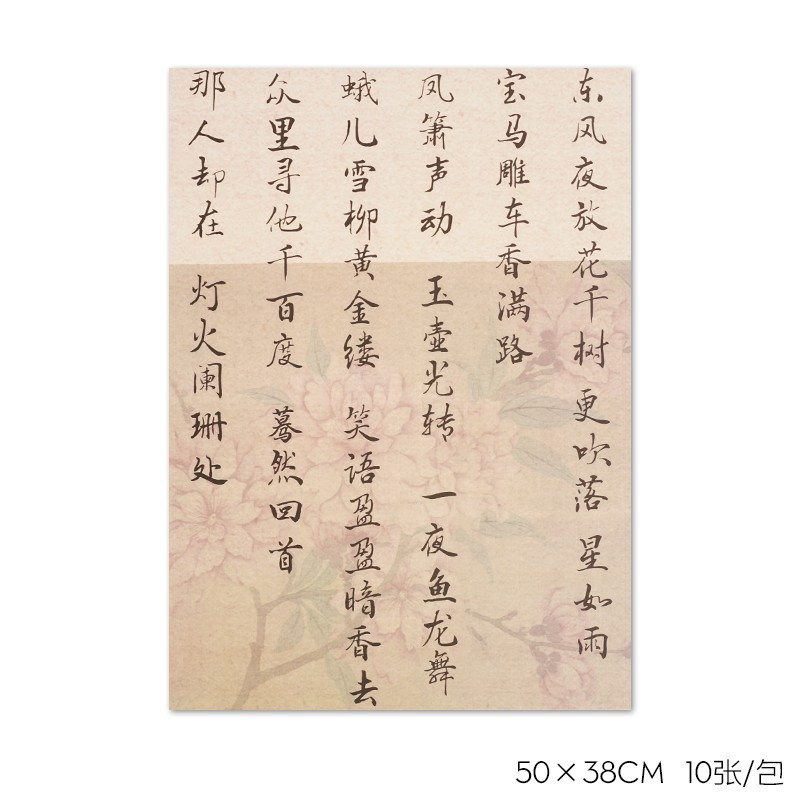 东风夜放花千树 更吹落 星如雨
宝马雕车香满路
凤箫声动 玉壶光转 一夜鱼龙舞
蛾儿雪柳黄金缕 笑语盈盈暗香去
众里寻他千百度 蓦然回首
那人却在 灯火阑珊处
50×38CM 10张/包